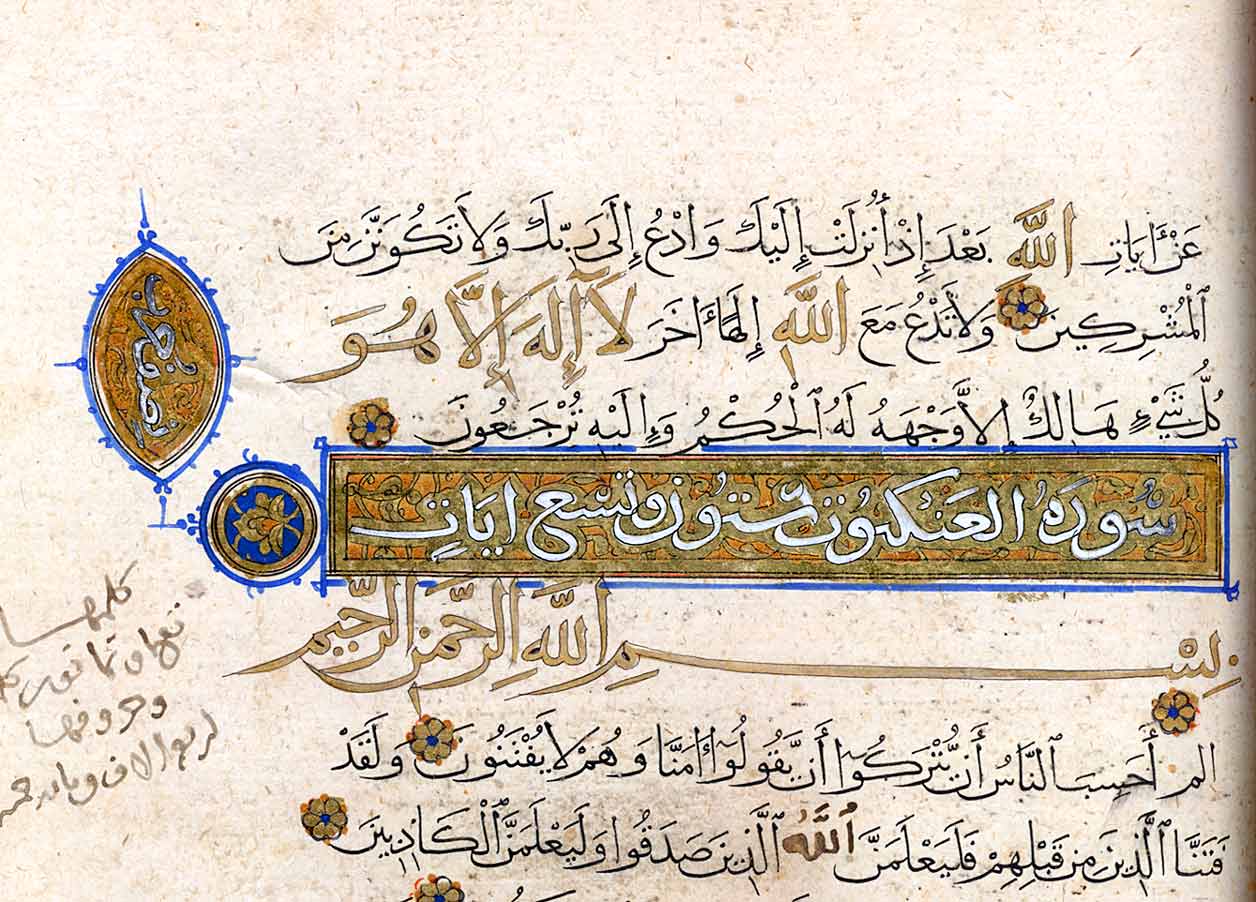 عَنْ ءَايَاتِ اللَّهِ بَعْدَ إِذْ أُنزِلَتْ إِلَيْكَ وَادْعُ إِلَىٰ رَبِّكَ وَلَا تَكُونَنَّ مِنَ
ٱلْمُشْرِكِينَ وَلَا تَدْعُ مَعَ اللَّهِ إِلَٰهًا ءَاخَرَ لَآ إِلَٰهَ إِلَّا هُوَ
كُلُّ شَيْءٍ هَالِكٌ إِلَّا وَجْهَهُ لَهُ ٱلْحُكْمُ وَإِلَيْهِ تُرْجَعُونَ
سُورَةُ الْعَنكبُوت ستّون وتسْع ايَاتٍ
بِسْمِ اللَّهِ الرَّحْمَٰنِ الرَّحِيمِ
الم أَحَسِبَ ٱلنَّاسُ أَن يُتْرَكُوٓا أَن يَقُولُوٓا ءَامَنَّا وَهُمْ لَا يُفْتَنُونَ وَلَقَدْ
فَتَنَّا ٱلَّذِينَ مِن قَبْلِهِمْ فَلَيَعْلَمَنَّ ٱللَّهُ ٱلَّذِينَ صَدَقُوا وَلَيَعْلَمَنَّ ٱلْكَاذِبِينَ
كلمها
وحروفها